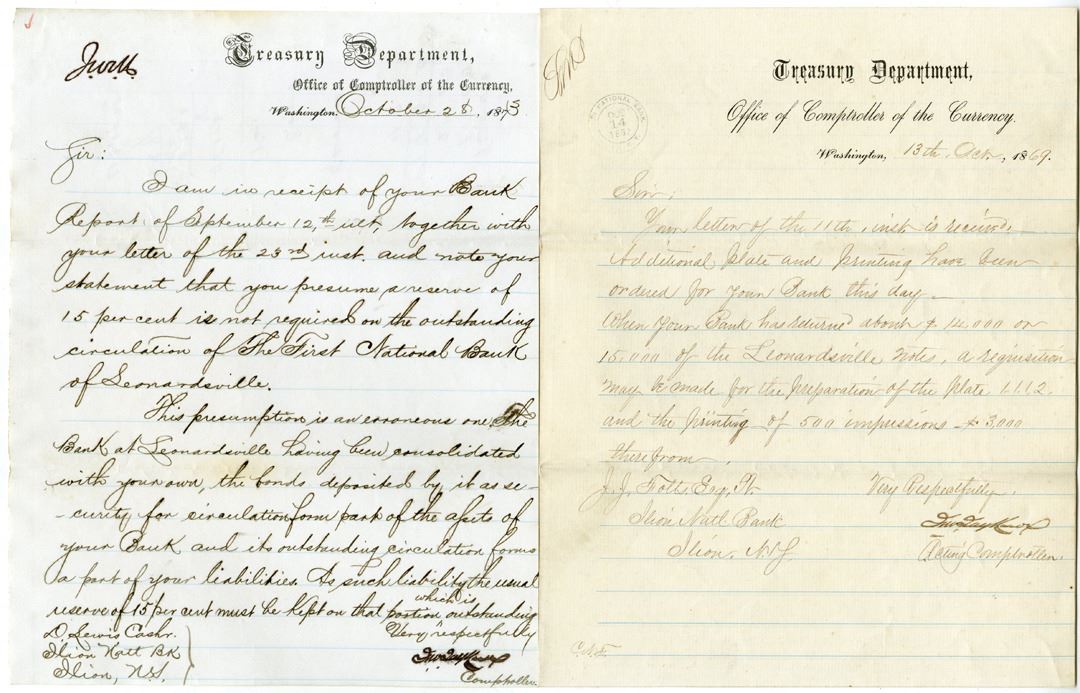 Treasury Department,
Office of Comptroller of the Currency,
Washington. October 28, 1873
Sir:
I am in receipt of your Bank
Report of September 12,th ult, together with
your letter of the 23rd inst. and note your
statement that you presume a reserve of
15 per cent is not required on the outstanding
circulation of The First National Bank
of Leonardsville.
This presumption is an erroneous one, the
Bank at Leonardsville having been consolidated
with your own, the bonds deposited by it as se-
-curity for circulation form part of the assets of
your Bank and its outstanding circulation forms
a part of your liabilities. As such liability the usual
reserve of 15 per cent must be kept on that portion which is outstanding
Very respectfully
D. Lewis Cashr.
Ilion Natl Bk
Ilion, N.Y.
Jno Jay Knox
Comptroller.
Treasury Department,
Office of Comptroller of the Currency.
Washington, 13th Oct., 1869.
NATIONAL BANK
OCT
14
Sir:
Your letter of the 11th, inst is received.
Additional plate and printing have been
ordered for your Bank this day.
When your Bank has returned about $14,000 or
15,000 of the Leonardsville notes, a requisition
may be made for the preparation of the plate 1.1.1.2.
and the printing of 500 impressions - $3,000
therefrom.
Very Respectfully.
J. J. Folts, Esq. Pt.
Ilion Natl Bank
Ilion, N.Y.
Jno Jay Knox
Acting Comptroller.